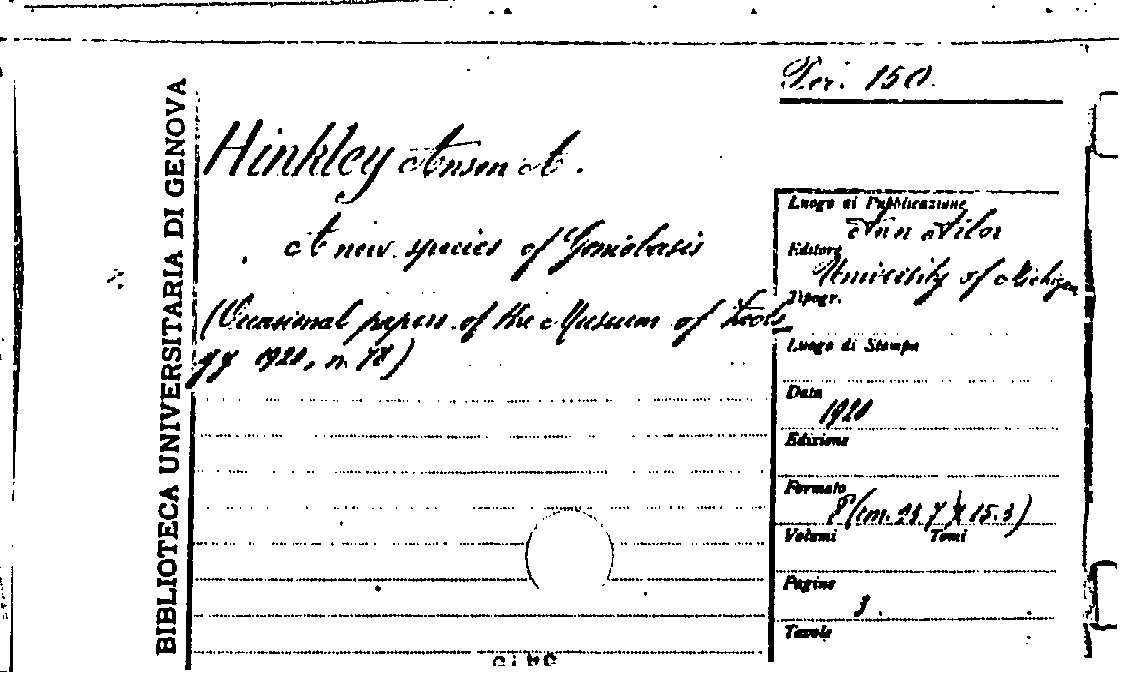 Per. 150.
BIBLIOTECA UNIVERSITARIA DI GENOVA
Hinkley Anson A.
A new species of Goniobasis
(Occasional papers of the Museum of Zoolo
gy 1920, n. 78)
Luogo di Pubblicazione
Ann Arbor
Editore
University of Michigan
Tipogr.
Luogo di Stampa
Data
1920
Edizione
Formato
8 (cm. 23.7 X 15.3)
Volumi Tomi
Pagine
3.
Tavole